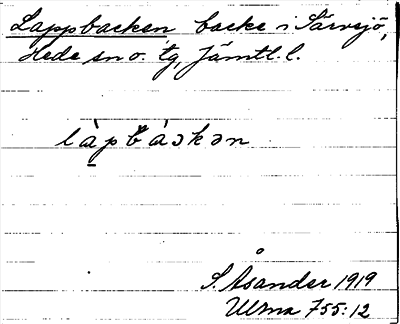 Lappbacken backe i Särvsjö,
Hede sn o. tg, Jämtl. l.
làpbáɔkən
S. Åsander 1919
Ulma 755:12